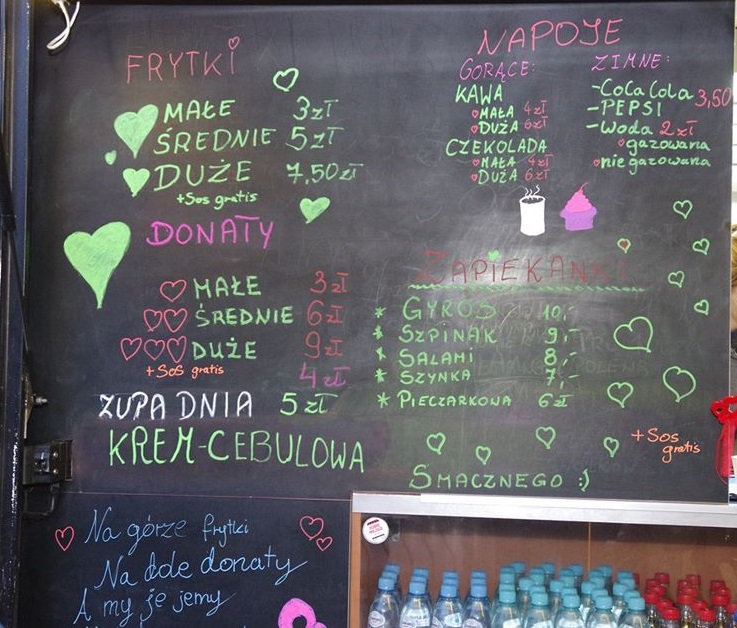 FRYTKI
MAŁE 3zł
ŚREDNIE 5zł
DUŻE 7,50zł
+Sos gratis
DONATY
MAŁE 3zł
ŚREDNIE 6zł
DUŻE 9zł
+Sos gratis
4zł
ZUPA DNIA 5zł
KREM-CEBULOWA
NAPOJE
GORĄCE:
KAWA
MAŁA 4zł
DUŻA 6zł
CZEKOLADA
MAŁA 4zł
DUŻA 6zł
ZIMNE:
-Coca Cola 3,50
-PEPSI
-Woda 2zł
gazowana
niegazowana
ZAPIEKANKI
* GYROS 10,-
* SZPINAK 9,-
* SALAMI 8,-
* SZYNKA 7,-
* PIECZARKOWA 6zł
+Sos
gratis
SMACZNEGO :)
Na górze frytki
Na dole donaty
A my je jemy